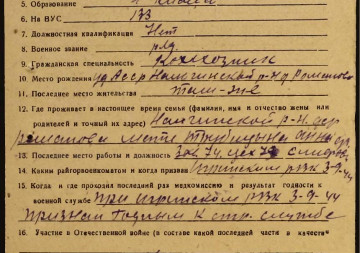 5. Образование
6. На ВУС 133
7. Должностная квалификация Нет
8. Военное звание ряд.
9. Гражданская специальность Колхозник
10. Место рождения уд АССР р-н
11. Последнее место жительства там-же
12. Где проживает в настоящее время семья (фамилия, имя и отчество жены или
родителей и точный их адрес) р-н дер
мать Анна
13. Последнее место работы и должность Зав 74, цех
14. Каким райгорвоенкоматом и когда призван Игринским РВК 3-9-44
15. Когда и где проходил последний раз медкомиссию и результат годности к
военной службе при игринском рвк 3-9-44
признан годным к стр. службе
16. Участие в Отечественной войне (в составе какой последней части и в качестве